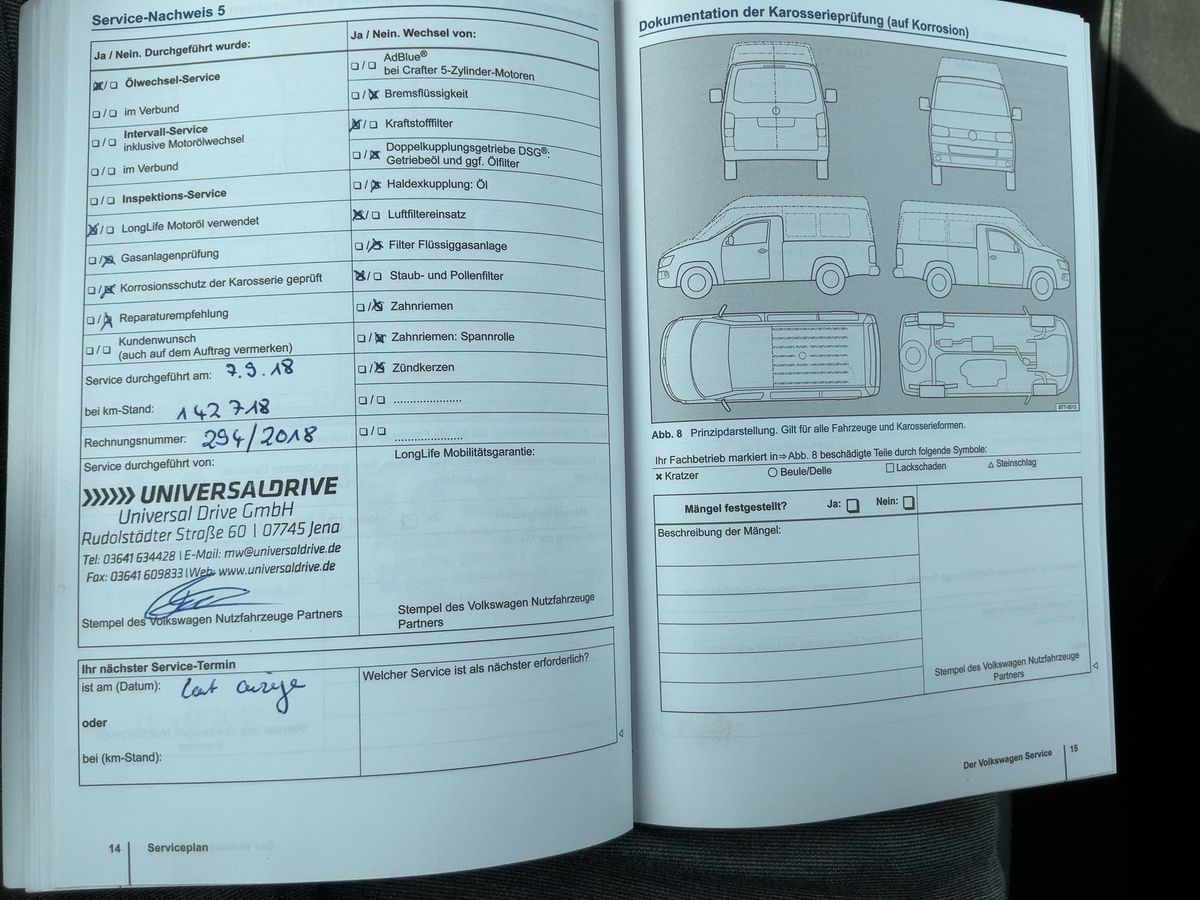 Service-Nachweis 5
Ja / Nein. Durchgeführt wurde:
☒/☐ Ölwechsel-Service
☐/☐ im Verbund
☐/☐ Intervall-Service
inklusive Motorölwechsel
☐/☐ im Verbund
☐/☐ Inspektions-Service
☒/☐ LongLife Motoröl verwendet
☐/☒ Gasanlagenprüfung
☐/☒ Korrosionsschutz der Karosserie geprüft
☐/☒ Reparaturempfehlung
☐/☐ Kundenwunsch
(auch auf dem Auftrag vermerken)
Service durchgeführt am: 7.9.18
bei km-Stand: 142 718
Rechnungsnummer: 294/2018
Service durchgeführt von:
UNIVERSALDRIVE
Universal Drive GmbH
Rudolstädter Straße 60 | 07745 Jena
Tel: 03641 634428 | E-Mail: mw@universaldrive.de
Fax: 03641 609833 | Web: www.universaldrive.de
Stempel des Volkswagen Nutzfahrzeuge Partners
Ja / Nein. Wechsel von:
☐/☐ AdBlue®
bei Crafter 5-Zylinder-Motoren
☐/☒ Bremsflüssigkeit
☒/☐ Kraftstofffilter
☐/☒ Doppelkupplungsgetriebe DSG®:
Getriebeöl und ggf. Ölfilter
☐/☒ Haldexkupplung: Öl
☒/☐ Luftfiltereinsatz
☐/☒ Filter Flüssiggasanlage
☒/☐ Staub- und Pollenfilter
☐/☒ Zahnriemen
☐/☒ Zahnriemen: Spannrolle
☐/☒ Zündkerzen
☐/☐ .....................
☐/☐ .....................
LongLife Mobilitätsgarantie:
Stempel des Volkswagen Nutzfahrzeuge
Partners
Ihr nächster Service-Termin
ist am (Datum): laut anzeige
oder
bei (km-Stand):
Welcher Service ist als nächster erforderlich?
14 Serviceplan
Dokumentation der Karosserieprüfung (auf Korrosion)
BTT-0513
Abb. 8 Prinzipdarstellung. Gilt für alle Fahrzeuge und Karosserieformen.
Ihr Fachbetrieb markiert in⇒ Abb. 8 beschädigte Teile durch folgende Symbole:
✖ Kratzer ○ Beule/Delle ☐ Lackschaden △ Steinschlag
Mängel festgestellt? Ja: ☐ Nein: ☐
Beschreibung der Mängel:
Stempel des Volkswagen Nutzfahrzeuge
Partners
Der Volkswagen Service 15